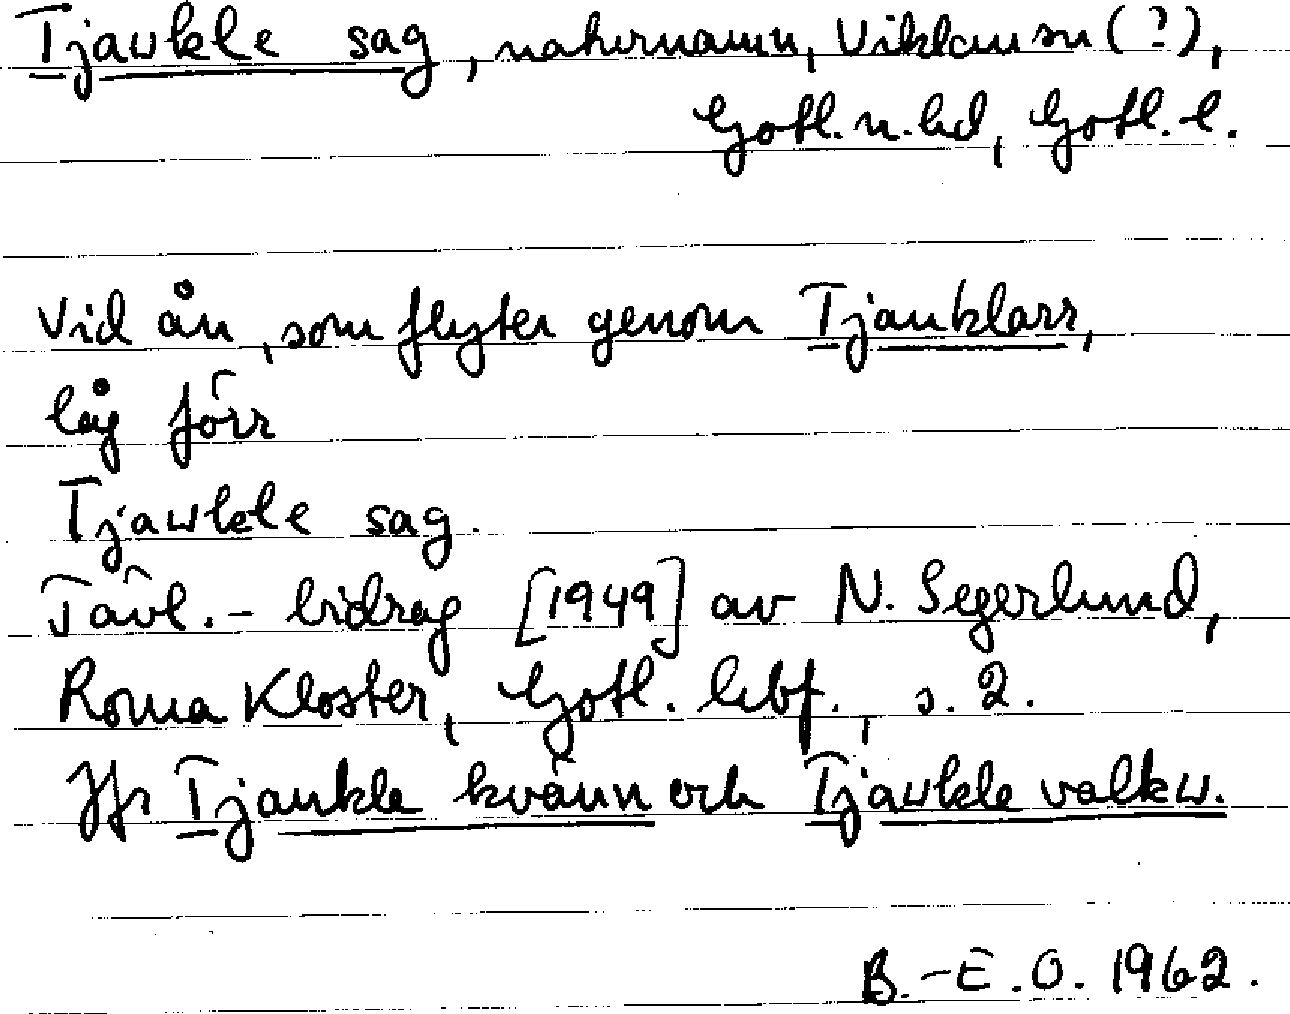 Tjaukle sag, naturnamn, Viklau sn (?),
Gotl. n. hd, Gotl. l.
Vid ån, som flyter genom Tjauklarr,
låg förr
Tjaukle sag.
Tävl.-bidrag [1949] av N. Segerlund,
Roma Kloster, Gotl. hbf., s. 2.
Jfr Tjaukle kvänn och Tjaukle valkw.
B.-E. O. 1962.